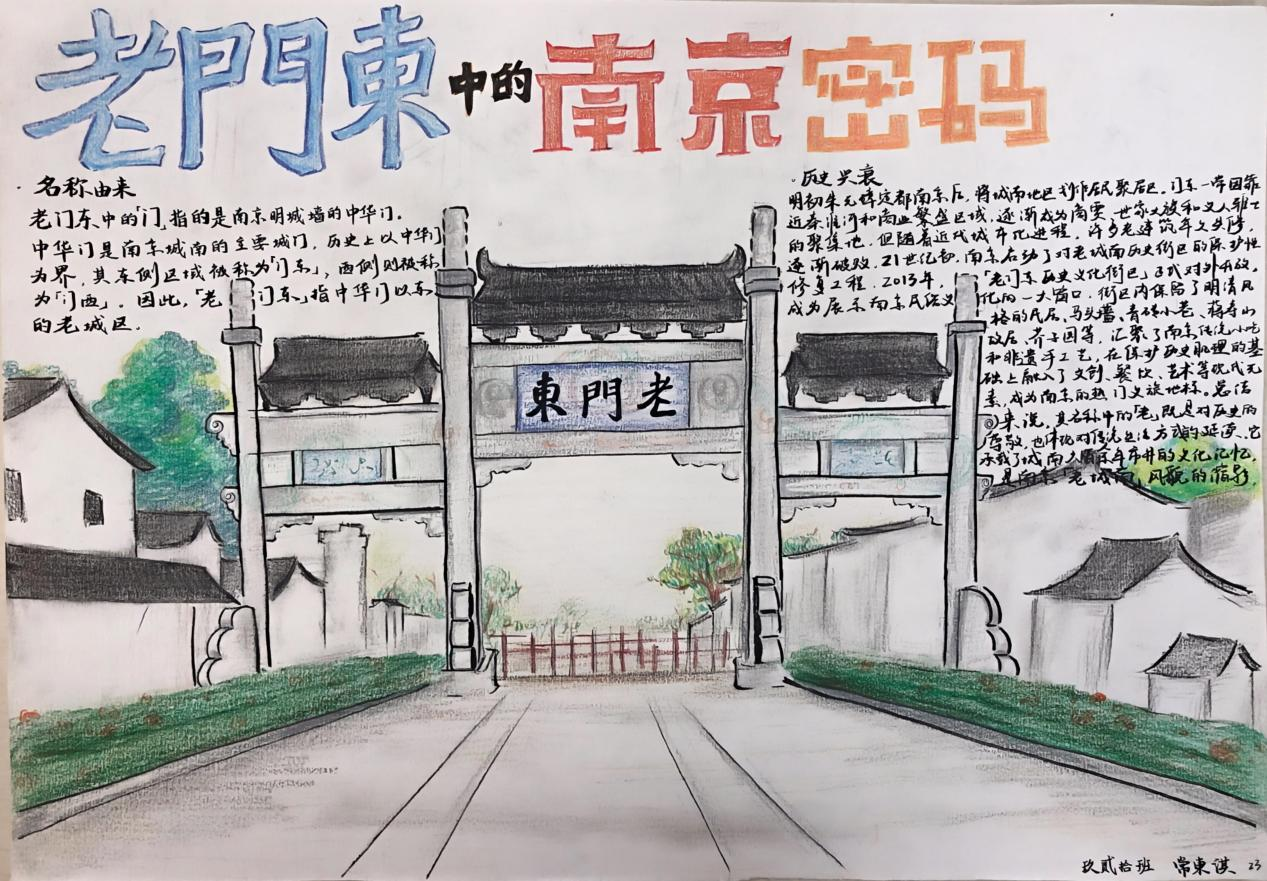 老門東中的南京密码
名称由来
老门东中的「门」指的是南京明城墙的中华门。
中华门是南京城南的主要城门，历史上以中华门
为界，其东侧区域被称为「门东」，西侧则被称
为「门西」。因此，「老门东」指中华门以东
的老城区。
历史兴衰
明初朱元璋定都南京后，将城南地区划作居民聚居区。门东一带因靠
近秦淮河和商业繁盛区域，逐渐成为商贾、世家大族和文人雅士
的聚集地。但随着近代城市化进程，许多老建筑年久失修，
逐渐破败。21世纪初，南京启动了对老城南历史街区的保护性
修复工程。2013年，「老门东历史文化街区」正式对外开放。
成为展示南京民俗文化的一大窗口。街区内保留了明清风
格的民居、马头墙、青砖小巷、蒋寿山
故居、芥子园等，汇聚了南京传统小吃
和非遗手工艺，在保护历史肌理的基
础上融入了文创、餐饮、艺术等现代元
素，成为南京的热门文旅地标。总结
来说，其名称中的「老」既是对历史的
尊敬，也体现对传统生活方式的延续、它
承载了城南人南京市井的文化记忆，
是南京「老城南」风貌的缩影。
東門老
玖贰拾班 常東淇 23